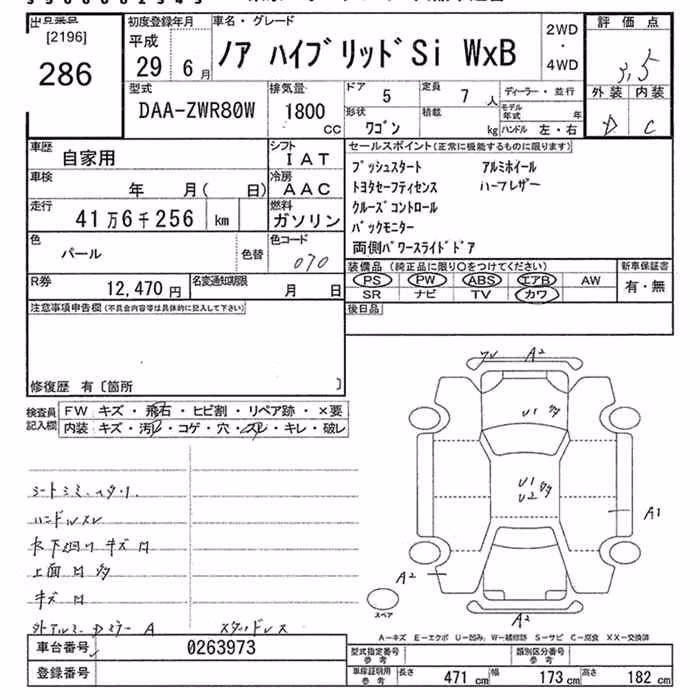 出品業区
[2196]
286
初度登録年月
平成
29年 6月
車名・グレード
ノア ハイブリッドSi WxB
2WD
・
4WD
評価点
3.5
外装 内装
D C
型式
DAA-ZWR80W
排気量
1800
CC
ドア
5
定員
7 人
ディーラー・並行
形状
ワゴン
積載
kg
モデル年式 年
ハンドル 左・右
車歴
自家用
シフト
IAT
車検
年 月( 日)
冷房
AAC
走行
41万6千256 km
燃料
ガソリン
色
パール
色替
色コード
070
R券
12,470 円
名変通知期限
月 日
セールスポイント(正常に機能するものに限ります)
プッシュスタート アルミホイール
トヨタセーフティセンス ハーフレザー
クルーズコントロール
バックモニター
両側パワースライドドア
装備品(純正品に限り○をつけてください)
PS PW ABS エアB AW
SR ナビ TV カワ
新車保証書
有・無
後日品
注意事項申告欄(不具合内容等は具体的に記入して下さい)
修復歴 有〔箇所 〕
検査員
記入欄
FW キズ・飛石・ヒビ割・リペア跡・×要
内装 キズ・汚レ・コゲ・穴・スレ・キレ・破レ
ハンドルスレ
上面
キズ
A
スタッドレス
A2
U1
U1
U2
A1
A2
A2
スペア
A-キズ E-エクボ U-凹み W-補修跡 S-サビ C-腐食 XX-交換済
車台番号
0263973
登録番号
型式指定番号
参考
類別区分番号
参考
車庫証明用
参考
長さ 471 cm 幅 173 cm 高さ 182 cm